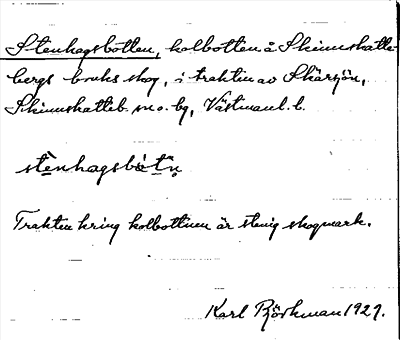 Stenhagsbotten, kolbotten å Skinnskatte-
bergs bruks skog, i trakten av Skärsjön,
Skinnskatteb. sn o. bg, Västmanl. l.
stènhagsbòt̄n̥
Trakten kring kolbottnen är stenig skogmark.
Karl Björkman 1927.